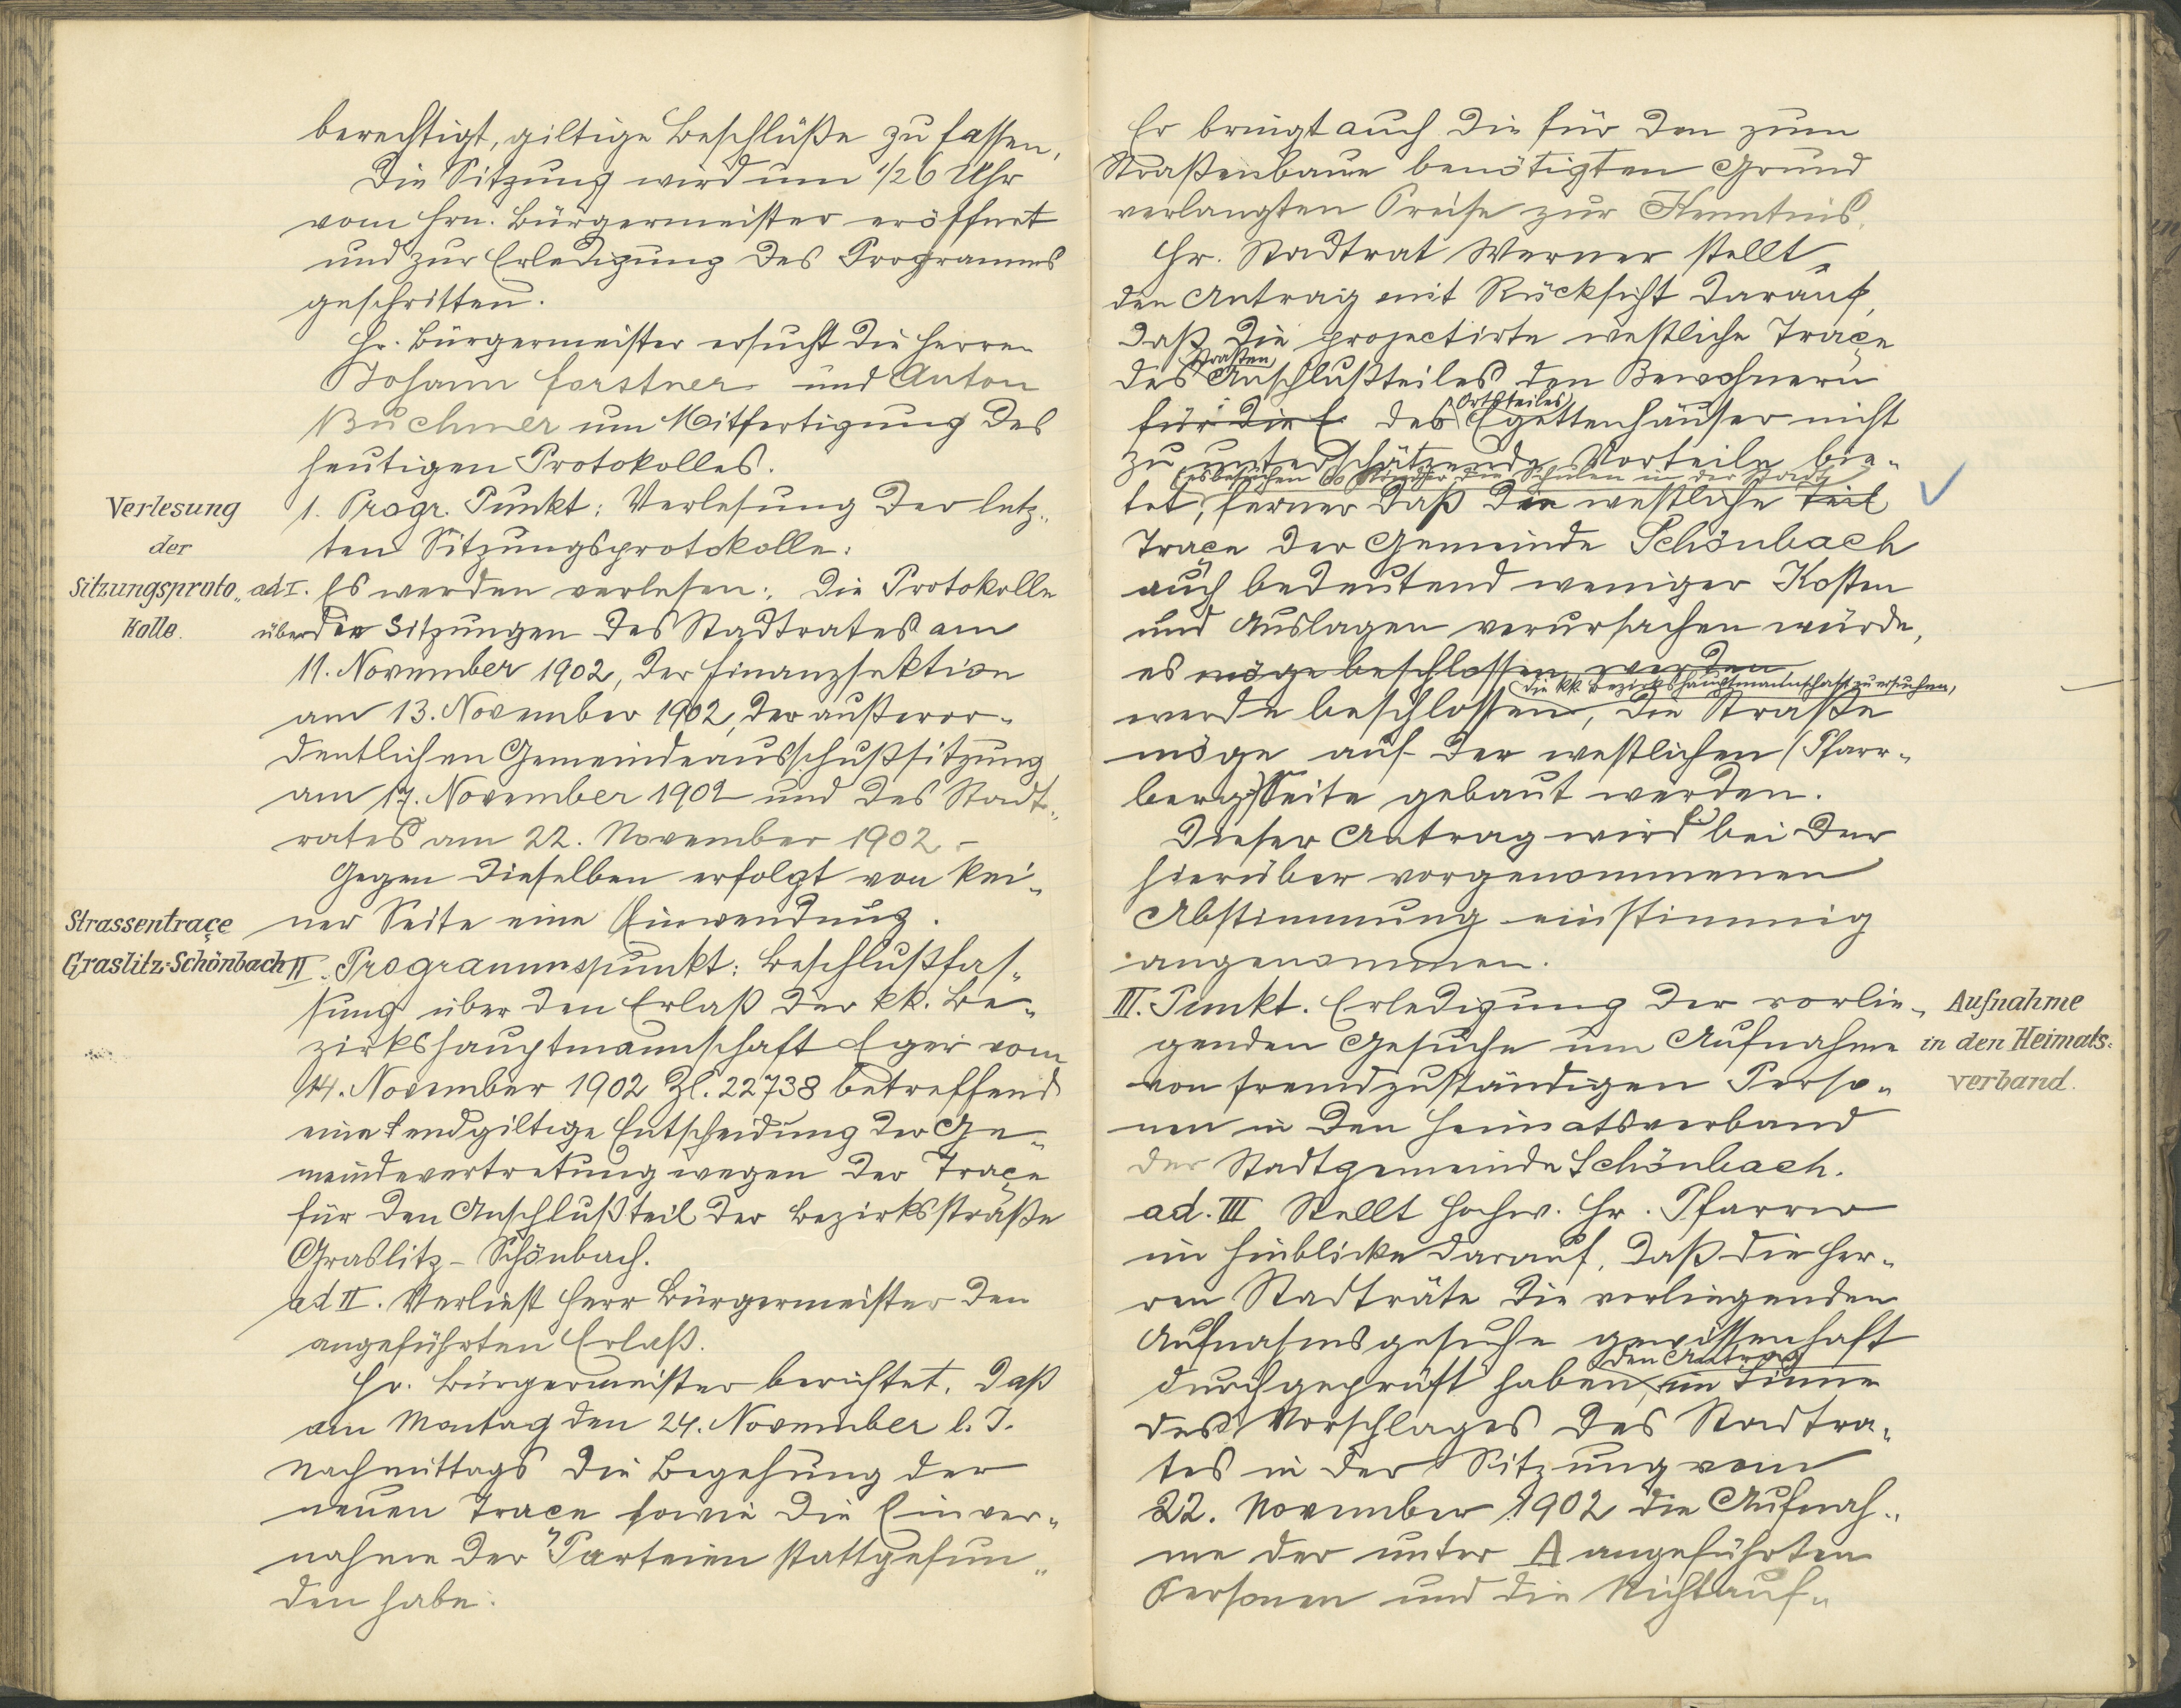 berechtigt, giltige Beschlüße zu fassen,
Die Sitzung wird um 1/2 6 Uhr
vom Hrn. Bürgermeister eröffnet
und zur Erledigung des Programms
geschritten.
Hr. Bürgermeister ersucht die Herren
Johann Forstner und Anton
Buchner um Mitfertigung des
heutigen Protokolles.
Verlesung
der
Sitzungsproto„
kolle.
1. Progr. Punkt: Verlesung der letz„
ten Sitzungsprotokolle:
ad I. Es werden verlesen: die Protokolle
über die Sitzungen des Stadtrates am
11. November 1902, der Finanzsektion
am 13. November 1902, der außeror„
dentlichen Gemeindeausschußsitzung
am 17. November 1902 und des Stadt„
rates am 22. November 1902.-
Gegen dieselben erfolgt von kei„
ner Seite eine Einwendung.
Strassentraçe
Graslitz-Schönbach
II. Programmspunkt: Beschlußfas„
sung über den Erlaß der kk. Be„
zirkshauptmannschaft Eger vom
14. November 1902 Zl. 22738 betreffend
eine endgiltige Entscheidung der Ge„
meindevertretung wegen der Traçe
für den Anschlußteil der Bezirksstraße
Graslitz - Schönbach.
ad II. Verliest Herr Bürgermeister den
angeführten Erlaß.
Hr. Bürgermeister berichtet, daß
am Montag den 24. November l. J.
nachmittags die Begehung der
neuen Traçe sowie die Einver„
nahme der Parteien stattgefun„
den habe.
Er bringt auch die für den zum
Straßenbaue benötigten Grund
verlangten Preise zur Kenntnis.
Hr. Stadtrat Werner stellt
den Antrag mit Rücksicht darauf,
daß die projectirte westliche Traçe
Straßen
des Anschlußteiles den Bewohnern
Ortsteiles
für die E. des Egettenhäuser nicht
zu unterschätzende Vorteile bie„
(es besuchen 60 Kinder die Schulen in der Stadt)
tet, ferner daß die westliche Teil
Traçe der Gemeinde Schönbach
auch bedeutend weniger Kosten
und Auslagen verursachen würde,
es möge beschlossen werden
die kk. Bezirkshauptmannschaft zu ersuchen,
werde beschlossen, die Straße
möge auf der westlichen (Pfarr„
berg) Seite gebaut werden.
Dieser Antrag wird bei der
hierüber vorgenommenen
Abstimmung einstimmig
angenommen.
III. Punkt. Erledigung der vorlie„
genden Gesuche um Aufnahme
von fremdzuständigen Perso„
nen in den Heimatsverband
der Stadtgemeinde Schönbach.
Aufnahme
in den Heimats:
verband.
ad. III Stellt hochw. Hr. Pfarrer
im Hinblicke darauf, daß die Her„
ren Stadträte die vorliegenden
Aufnahmsgesuche gewissenhaft
den Antrag
durchgeprüft haben, im Sinne
des Vorschlages des Stadtra„
tes in der Sitzung vom
22. November 1902 die Aufnah„
me der unter A angeführten
Personen und die Nichtauf„